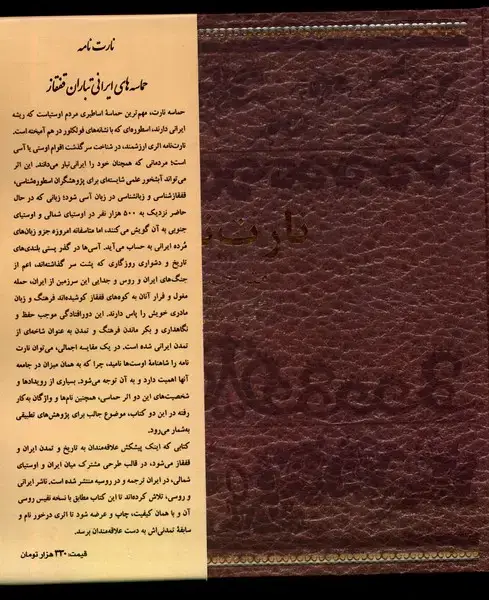 نارت نامه
حماسه های ایرانی تباران قفقاز
حماسه نارت، مهم‌ترین حماسهٔ اساطیری مردم اوستیاست که ریشه
ایرانی دارند، اسطوره‌ای که با نشانه‌های فولکلور در هم آمیخته است.
نارت‌نامه اثری ارزشمند، در شناخت سرگذشت اقوام اوستی یا آسی
است؛ مردمانی که همچنان خود را ایرانی‌تبار می‌دانند. این اثر
می‌تواند آبشخور علمی شایسته‌ای برای پژوهشگران اسطوره‌شناسی،
قفقازشناسی و زبانشناسی در زبان آسی شود؛ زبانی که در حال
حاضر نزدیک به ۵۰۰ هزار نفر در اوستیای شمالی و اوستیای
جنوبی به آن گویش می‌کنند، اما متاسفانه امروزه جزو زبان‌های
مُرده ایرانی به حساب می‌آید. آسی‌ها در گذر پستی بلندی‌های
تاریخ و دشواری روزگاری که پشت سر گذاشته‌اند، اعم از
جنگ‌های ایران و روس و جدایی این سرزمین از ایران، حمله
مغول و فرار آنان به کوه‌های قفقاز کوشیده‌اند فرهنگ و زبان
مادری خویش را پاس دارند. این دورافتادگی موجب حفظ و
نگاهداری و بکر ماندن فرهنگ و تمدن به عنوان شاخه‌ای از
تمدن ایرانی شده است. در یک مقایسه اجمالی، می‌توان نارت
نامه را شاهنامهٔ اوست‌ها نامید، چرا که به همان میزان در جامعه
آنها اهمیت دارد و به آن توجه می‌شود. بسیاری از رویدادها و
شخصیت‌های این دو اثر حماسی، همچنین نام‌ها و واژگان به‌کار
رفته در این دو کتاب، موضوع جالب برای پژوهش‌های تطبیقی
به‌شمار می‌رود.
کتابی که اینک پیشکش علاقه‌مندان به تاریخ و تمدن ایران و
قفقاز می‌شود، در قالب طرحی مشترک میان ایران و اوستیای
شمالی، در ایران ترجمه و در روسیه منتشر شده است. ناشر ایرانی
و روسی، تلاش کرده‌اند تا این کتاب مطابق با نسخه نفیس روسی
آن و با همان کیفیت، چاپ و عرضه شود تا اثری درخور نام و
سابقهٔ تمدنی‌اش به دست علاقه‌مندان برسد.
قیمت: ۳۳۰ هزار تومان